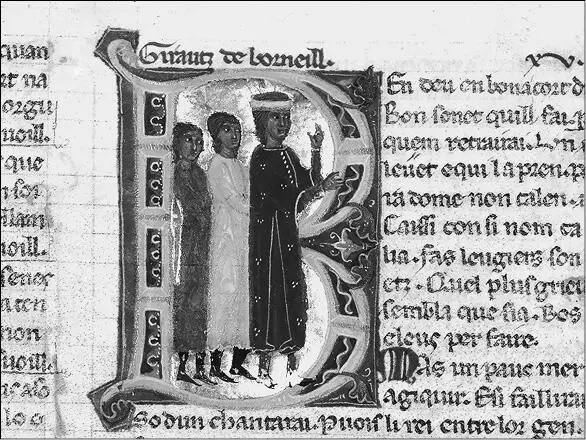 quan
rt na
orgu
uoill.
que
uoill.
senes
non
uoill.
Girautz de borneill.
xv.
En deu en bonacort d
Bon sonet quill fai
quem retrairai.
leuet e qui la pren
na dome non calen
Caissi con si nom ca
lia. fas leugiers son
etz. Quel plus grieu
sembla que sia. Bos
eleus per faire.
Mas un pauc mer
agiquir. Esi faillira
So diun chantarai. Puois li rei entre lor gen